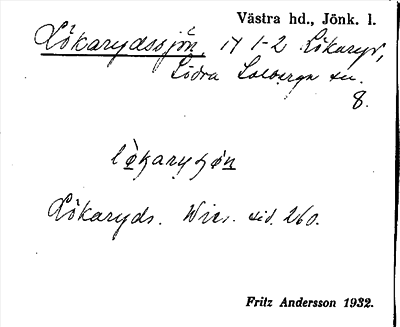 Västra hd., Jönk. l.
Lökarydssjön, i 1-2 Lökaryd,
Södra Solberga sn.
8.
Lökaryds. Wies. sid. 260.
Fritz Andersson 1932.